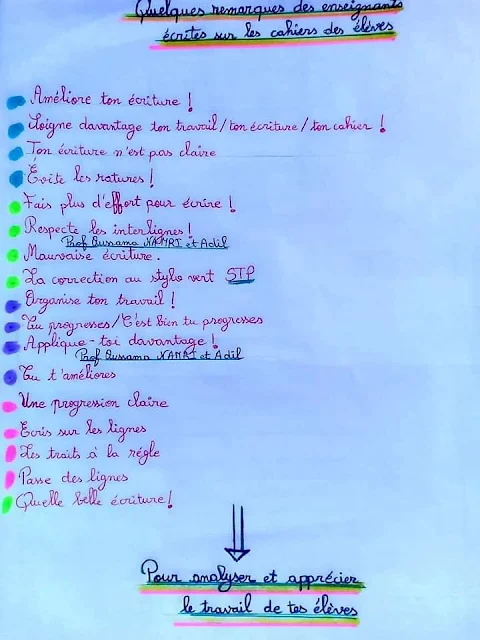 Quelques remarques des enseignants
écrites sur les cahiers des élèves
Améliore ton écriture !
Soigne davantage ton travail/ton écriture/ton cahier !
Ton écriture n'est pas claire
Évite les ratures !
Fais plus d'effort pour écrire !
Respecte les interlignes !
Prof Oussama NAMRI et Adil
Mauvaise écriture.
La correction au stylo vert STP
Organise ton travail !
Tu progresses/C'est bien tu progresses
Applique-toi davantage !
Prof Oussama NAMRI et Adil
Tu t'améliores
Une progression claire
Ecris sur les lignes
Les traits à la régle
Passe des lignes
Quelle belle écriture !
Pour analyser et apprécier
le travail de tes élèves